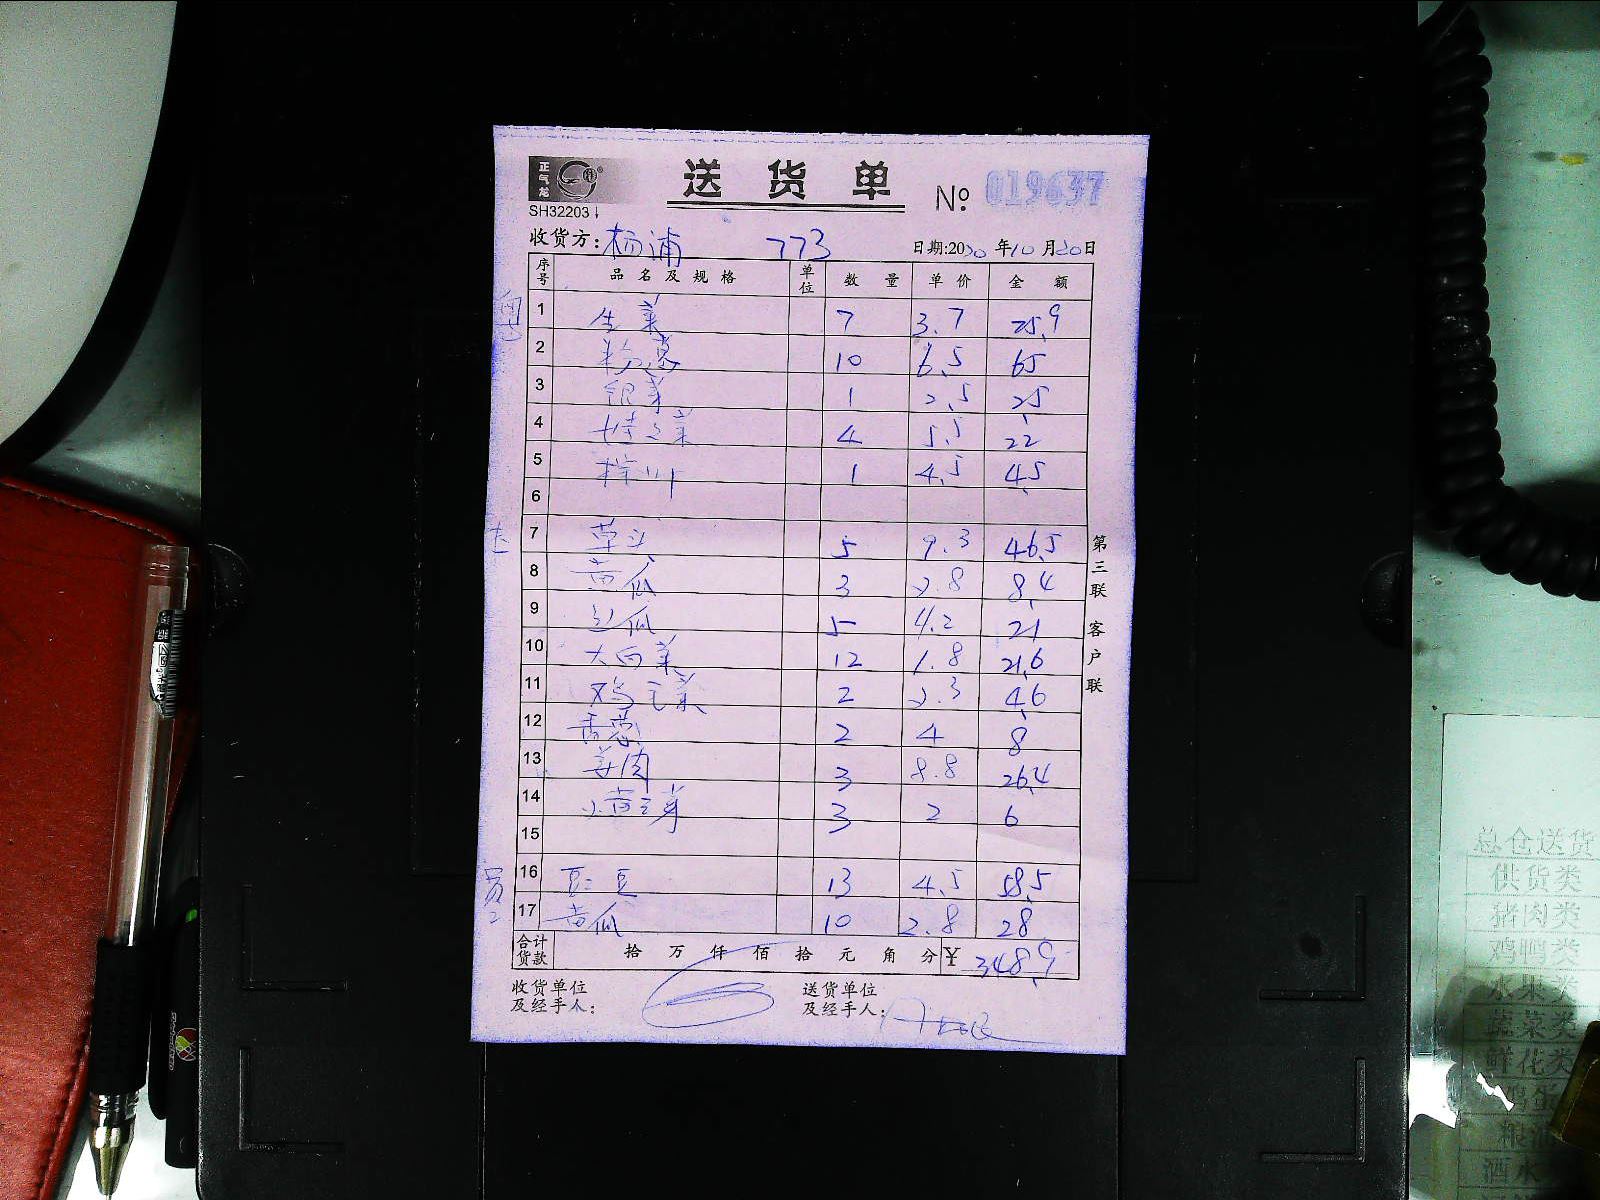 正气龙
送 货 单 № 019637
SH32203
收货方: 杨浦 773 日期:2020年10月20日
序号 品名及规格 单位 数量 单价 金额
1 生菜 7 3.7 25.9
2 10 6.5 65
3 银芽 1 2.5 2.5
4 4 5.5 22
5 1 4.5 4.5
6
7 草头 5 9.3 46.5
8 黄瓜 3 2.8 8.4
9 5 4.2 21
10 大白菜 12 1.8 21.6
11 鸡毛菜 2 2.3 4.6
12 香葱 2 4 8
13 姜肉 3 8.8 26.4
14 小黄豆芽 3 2 6
15
16 13 4.5 58.5
17 黄瓜 10 2.8 28
合计货款 拾 万 仟 佰 拾 元 角 分 ¥ 348.9
收货单位及经手人: 送货单位及经手人:
第三联 客户联
总仓送货
供货类
猪肉类
鸡鸭类
水果类
蔬菜类
鲜花类
鸡蛋
粮油
酒水